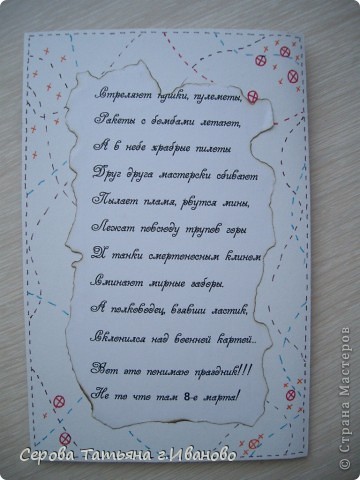 Стреляют пушки, пулеметы,
Ракеты с бомбами летают,
А в небе храбрые пилоты
Друг друга мастерски сбивают
Пылает пламя, рвутся мины,
Лежат повсюду трупов горы
И танки смертоносным клином
Сминают мирные заборы.
А полководец, взявши ластик,
Склонился над военной картой..
Вот это понимаю праздник!!!
Не то что там 8-е марта!
Серова Татьяна г.Иваново
© Страна Мастеров